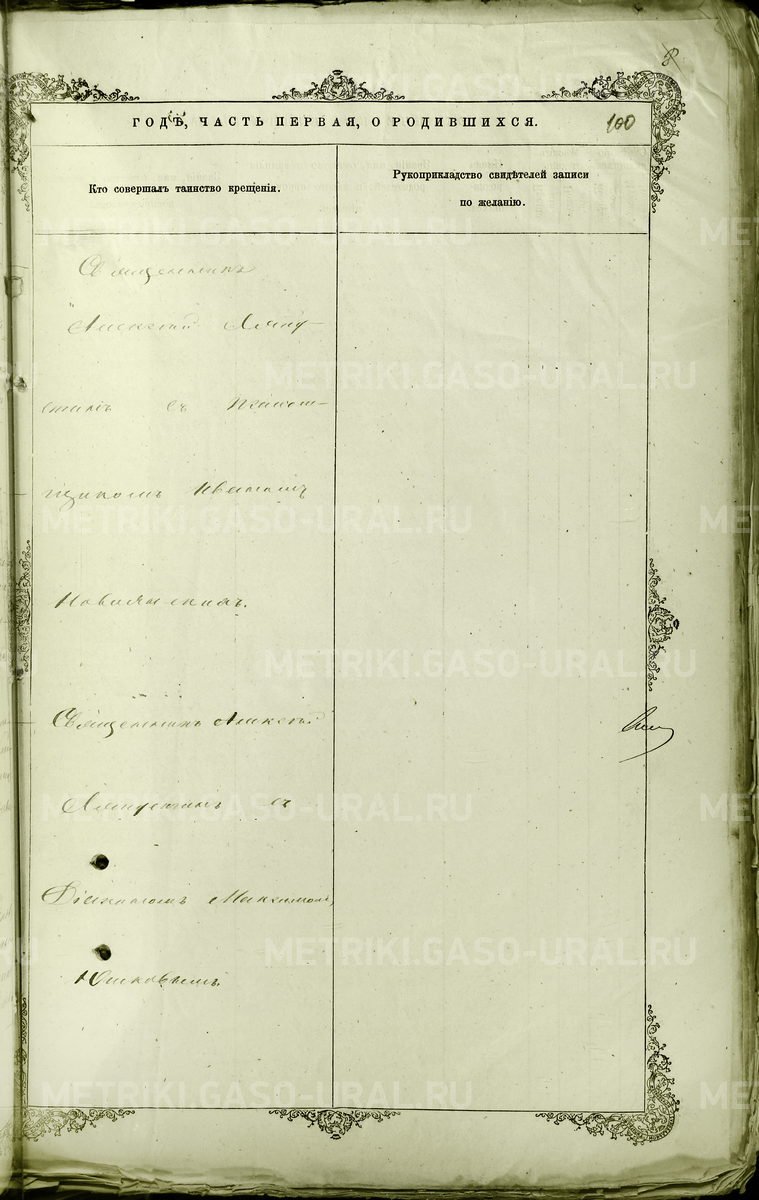 8
ГОДѢ, ЧАСТЬ ПЕРВАЯ, О РОДИВШИХСЯ.
100
Кто совершалъ таинство крещенія.
Рукоприкладство свидѣтелей записи
по желанію.
Священникъ
Алексѣй
съ Псалом-
щикомъ Иваномъ
Священникъ Алексѣй
съ
Діакономъ Максимомъ
Юшковымъ.
METRIKI.GASO-URAL.RU